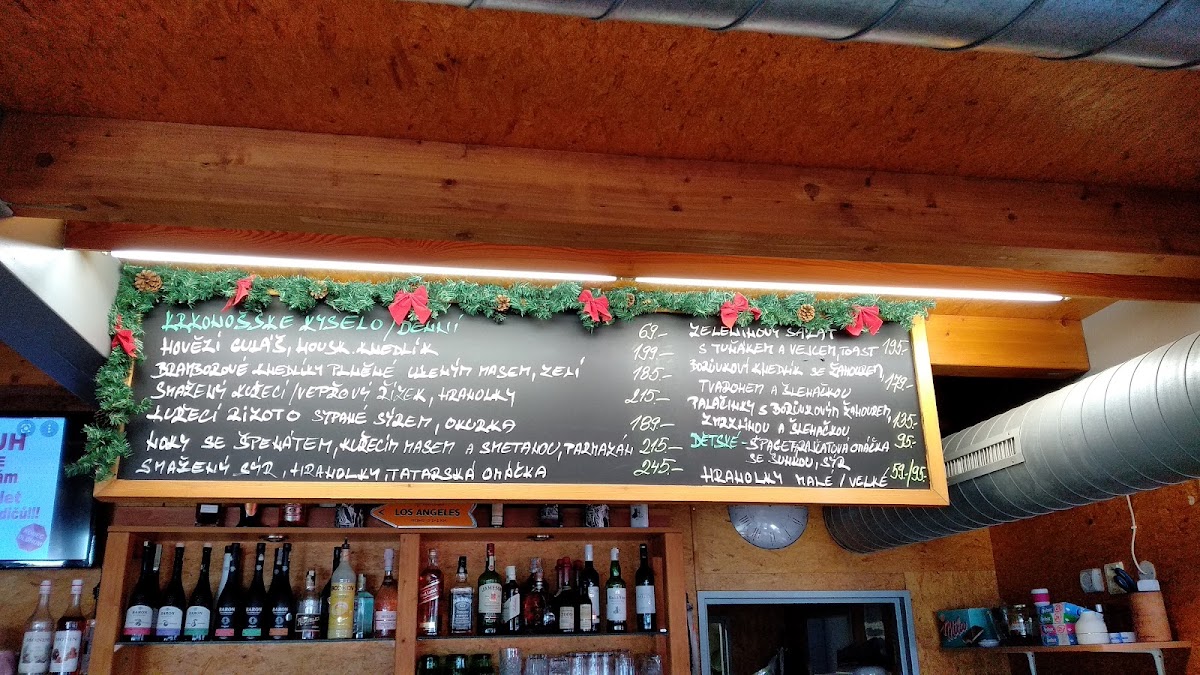 KRKONOŠSKÉ KYSELO / DENNÍ 69.-
HOVĚZÍ GULÁŠ, HOUSK. KNEDLÍK 199.-
BRAMBOROVÉ KNEDLÍKY PLNĚNÉ UZENÝM MASEM, ZELÍ 185.-
SMAŽENÝ KUŘECÍ/VEPŘOVÝ ŘÍZEK, HRANOLKY 215.-
KUŘECÍ RIZOTO SYPANÉ SÝREM, OKURKA 189.-
NOKY SE ŠPENÁTEM, KUŘECÍM MASEM A SMETANOU, PARMAZÁN 215.-
SMAŽENÝ SÝR, HRANOLKY, TATARSKÁ OMÁČKA 245.-
ZELENINOVÝ SALÁT
S TUŇÁKEM A VEJCEM, TOAST 195.-
BORŮVKOVÝ KNEDLÍK SE ŽAHOUREM,
TVAROHEM A ŠLEHAČKOU 179.-
PALAČINKY S BORŮVKOVÝM ŽAHOUREM,
ZMRZLINOU A ŠLEHAČKOU 135.-
DĚTSKÉ - ŠPAGETY, RAJČATOVÁ OMÁČKA 95.-
SE ŠUNKOU, SÝR
HRANOLKY MALÉ / VELKÉ 59/95.-
LOS ANGELES
UH
JAMESON